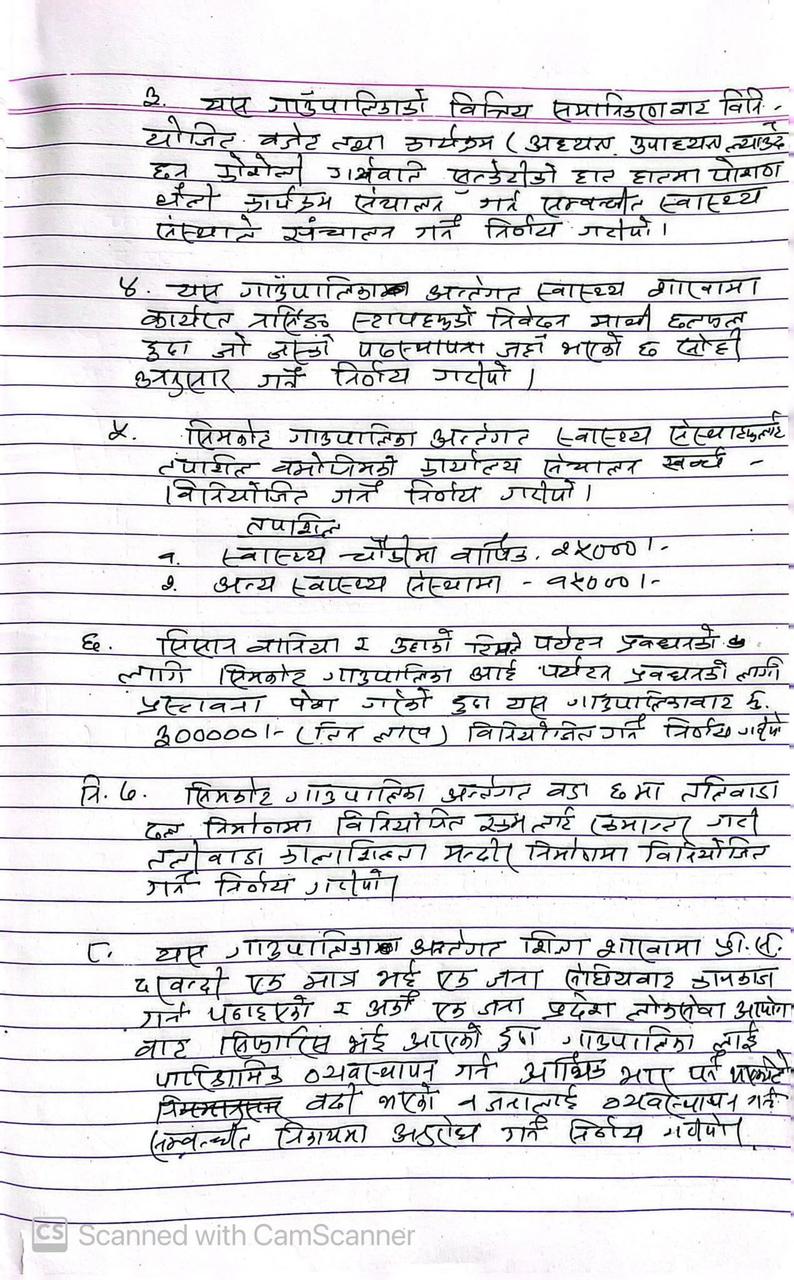 ३. यस गाउँपालिकाको वित्तिय समानिकरण बाट विनि -
योजित बजेट तथा कार्यक्रम ( अध्यक्ष उपाध्यक्ष
कोशेली गर्भवति सुत्केरीको हात हातमा पोषण
थैली कार्यक्रम संचालन गर्न सम्वन्धीत स्वास्थ्य
संस्थाले संन्चालन गर्ने निर्णय गरीयो।
४. यस गाउँपालिका अन्तेगत स्वास्थ्य शाखामा
कार्यरत नर्सिङ स्टाफहरुको निवेदन माथी छलफल
हुदा जो जस्को पदस्थापना जहाँ भएको छ सोही
अनुसार गर्ने निर्णय गरीयो ।
५. सिमकोट गाउपालिका अन्तेगत स्वास्थ्य संस्थाहरुलाई
तपाशिल वमोजिमको कार्यालय संन्चालन खर्च -
विनियोजित गर्ने निर्णय गरीयो।
तपाशिल
१. स्वास्थ्य चौकीमा वार्षिक. २५०००।-
२. अन्य स्वास्थ्य संस्थामा - १५०००।-
६. लागि सिमकोट गाउपालिका आई पर्यटन प्रवधनको लागी
प्रस्तावना पेश गरेको हुदा यस गाउपालिकाबाट रु.
३०००००।- (तिन लाख) विनियोजित गर्ने निर्णय गरीयो
नि. ७. सिमकोट गाउपालिका अन्तेगत वडा ६ मा
निर्माणमा विनियोजित रकम लाई रकमान्तर गरी
कालाशिल्ता मन्दीर निर्माणमा विनियोजित
गर्ने निर्णय गरीयो।
८. यस गाउपालिका अन्तेगत शिक्षा शाखामा प्रा.स.
दरवन्दी एक मात्र भई एक जना संघियबाट कामकाज
गर्न पठाइएको र अर्को एक जना प्रदेश लोकसेवा आयोग
बाट सिफारिस भई आएको हुदा गाउपालिका लाई
पारिश्रामिक व्यवस्थापन गर्न आर्थिक भार पर्ने
वढी भएको १ जनालाई व्यवस्थापन गर्न
सम्वन्धीत निकायमा अनुरोध गर्ने निर्णय गरीयो।
CS Scanned with CamScanner